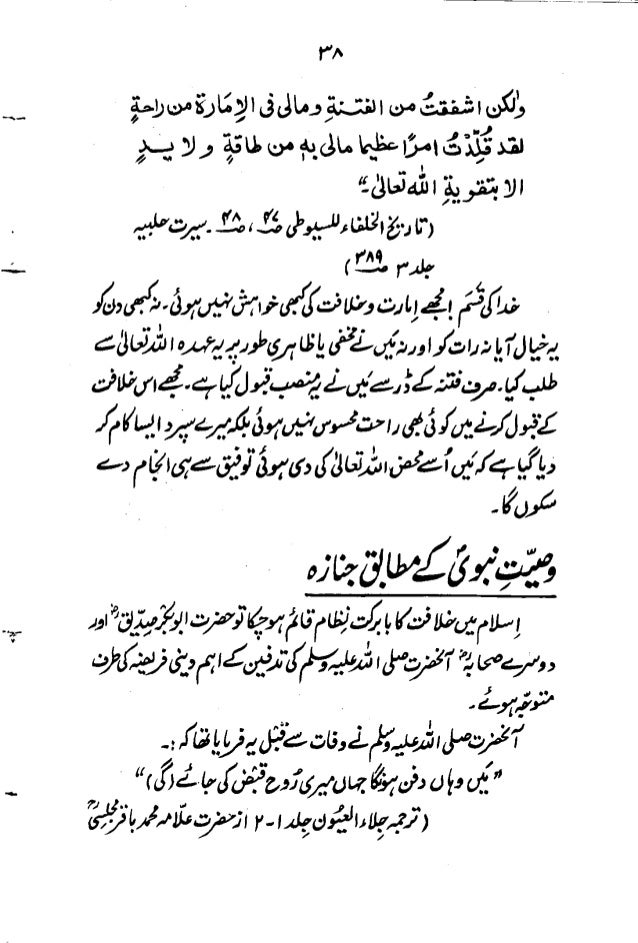 ۳۸
ولٰكن اشفقتُ من الفتنةِ ومالى فى الاِمَارة من راحةٍ
لقد قُلِّدْتُ امرًا عظيما مالى بهٖ من طاقةٍ ولا يدٍ
الا بتقويةِ اللّٰه تعالىٰ۔“
(تاریخ الخلفاء للسیوطی ص۴۷، ص۴۸۔ سیرت حلبیہ
جلد ۳ ص۳۸۹)
خدا کی قَسم! مجھے اِمارت و خلافت کی کبھی خواہش نہیں ہوئی۔ نہ کبھی دن کو
یہ خیال آیا نہ رات کو اور نہ مَیں نے مخفی یا ظاہری طور پر یہ عہدہ اللہ تعالیٰ سے
طلب کیا۔ صرف فتنہ کے ڈر سے مَیں نے یہ منصب قبول کیا ہے۔ مجھے اس خلافت
کے قبول کرنے میں کوئی بھی راحت محسوس نہیں ہوئی بلکہ میرے سپرد ایسا کام کر
دیا گیا ہے کہ مَیں اُسے محض اللہ تعالیٰ کی دی ہوئی توفیق سے ہی انجام دے
سکوں گا۔
وصیّتِ نبویؐ کے مطابق جنازہ
اِسلام میں خلافت کا بابرکت نِظام قائم ہو چکا تو حضرت ابوبکر صدیقؓ اور
دوسرے صحابہؓ آنحضرت صلی اللہ علیہ وسلم کی تدفین کے اہم دینی فریضہ کی طرف
متوجّہ ہوئے۔
آنحضرت صلی اللہ علیہ وسلم نے وفات سے قبل یہ فرمایا تھا کہ :۔
”مَیں وہاں دفن ہونگا جہاں میری رُوح قبض کی جائے (گی)“
(ترجمہ جلاء العیُون جِلد ۱-۲ از حضرت علّامہ محمد باقر مجلسیؒ